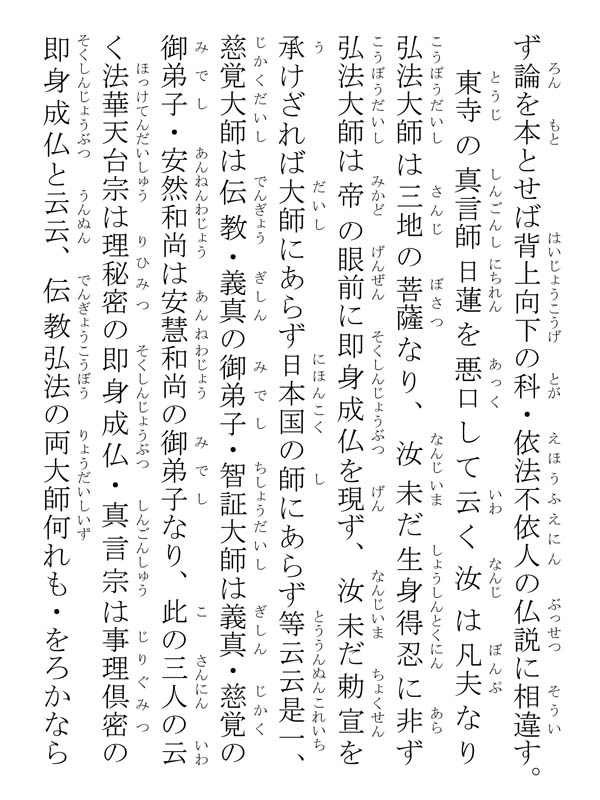 ず論を本とせば背上向下の科・依法不依人の仏説に相違す。
東寺の真言師日蓮を悪口して云く汝は凡夫なり
弘法大師は三地の菩薩なり、汝未だ生身得忍に非ず
弘法大師は帝の眼前に即身成仏を現ず、汝未だ勅宣を
承けざれば大師にあらず日本国の師にあらず等云云是一、
慈覚大師は伝教・義真の御弟子・智証大師は義真・慈覚の
御弟子・安然和尚は安慧和尚の御弟子なり、此の三人の云
く法華天台宗は理秘密の即身成仏・真言宗は事理倶密の
即身成仏と云云、伝教弘法の両大師何れも・をろかなら